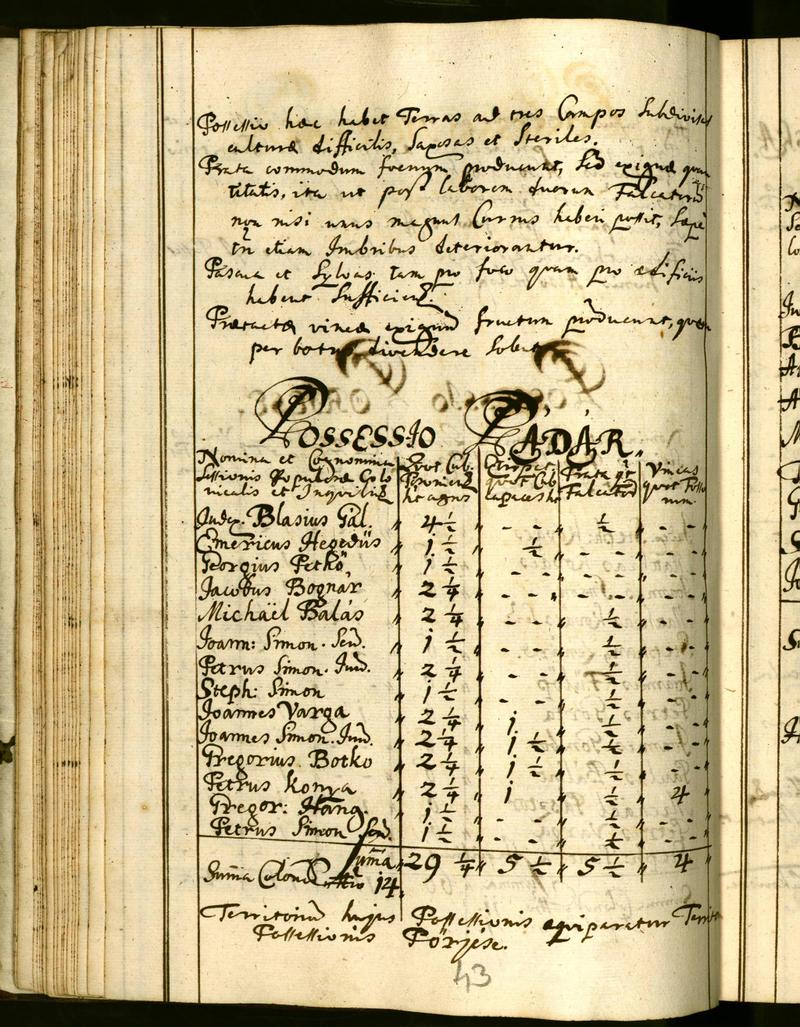 Possessio haec habet Terras ad tres Campos Subdivisas
culturae difficilis, Saxosas et Steriles.
Prata commodum foenum producunt, sed exiguae quan
titatis, ita ut post laborem duorum Falcatorum
non nisi unus magnus Currus haberi possit, saepe
etiam Imbribus deteriorantur.
Pascua et Sylvas tam pro foco quam pro aedificiis
habent Sufficient.
vineae exiguum fructum producunt,
per divendere solent
POSSESSIO PADÁR.
Nomina et Cognomina
Sessionis Colo
nicalis et Inquilin
Quot Cub.
quot Cub
capaces
Prata
Falcator
Vineas
quot Fosso
rum
Judex. Blasius Gál. " 4 1/2 " - - " 1/2 " - - "
Emericus Hegedüs " 1 1/2 " 1/2 " - - " - - "
Georgius Petkö, " 1 1/2 " - - " - - " - - "
Jacobus Bognár " 2 1/4 " - - " - - " - - "
Michäel Balás " 2 1/4 " - - " 1/2 " - - "
Joann: Simon. Sen. " 1 1/2 " - - " 1/2 " - - "
Petrus Simon. Jun. " 2 1/4 " - - " 1/2 " - - "
Steph: Simon " 1 1/2 " - - " 1/2 " - - "
Joannes Varga " 2 1/4 " 1 " 1/2 " - - "
Joannes Simon. Jun. " 2 1/4 " 1 1/2 " 1/2 " - - "
Gregorius Botko " 2 1/4 " 1 1/2 " 1/2 " - - "
Petrus Konya " 2 1/4 " 1 " 1/2 " 4 "
Gregor: Hang. " 1 1/2 " - - " 1/2 " - - "
Petrus Simon Sen. " 1 1/2 " - - " 1/2 " - - "
Suma " 29 1/4 " 5 1/2 " 5 1/2 " 4 "
Suma 14.
Territorium hujus Possessionis aequiparatur
Possessionis Pörjése.
43